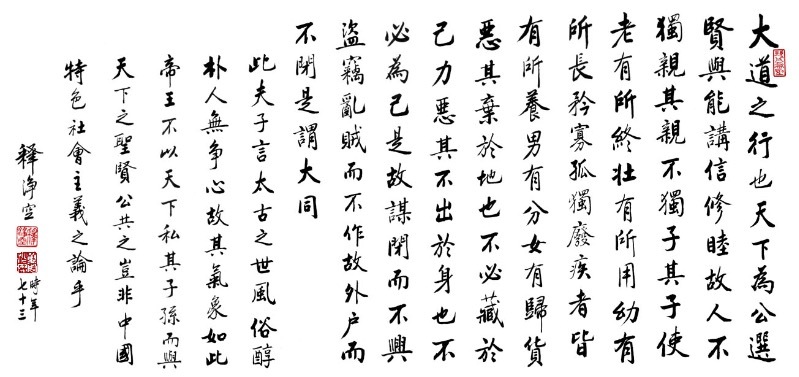 大道之行也天下為公選
賢與能講信修睦故人不
獨親其親不獨子其子使
老有所終壯有所用幼有
所長矜寡孤獨廢疾者皆
有所養男有分女有歸貨
惡其棄於地也不必藏於
己力惡其不出於身也不
必為己是故謀閉而不興
盜竊亂賊而不作故外户而
不閉是謂大同
此夫子言太古之世風俗醇
朴人無爭心故其氣象如此
帝王不以天下私其子孫而與
天下之聖賢公共之豈非中國
特色社會主義之論乎
釋淨空
時年
七十三